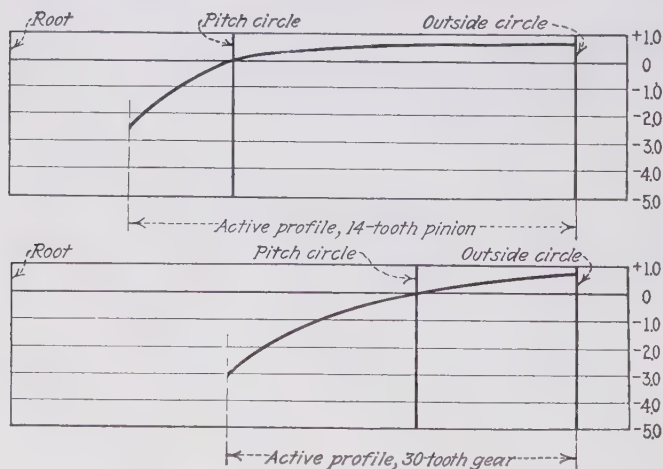 Root
Pitch circle
Outside circle
+1.0
0
-1.0
-2.0
-3.0
-4.0
-5.0
Active profile, 14-tooth pinion
Root
Pitch circle
Outside circle
+1.0
0
-1.0
-2.0
-3.0
-4.0
-5.0
Active profile, 30-tooth gear